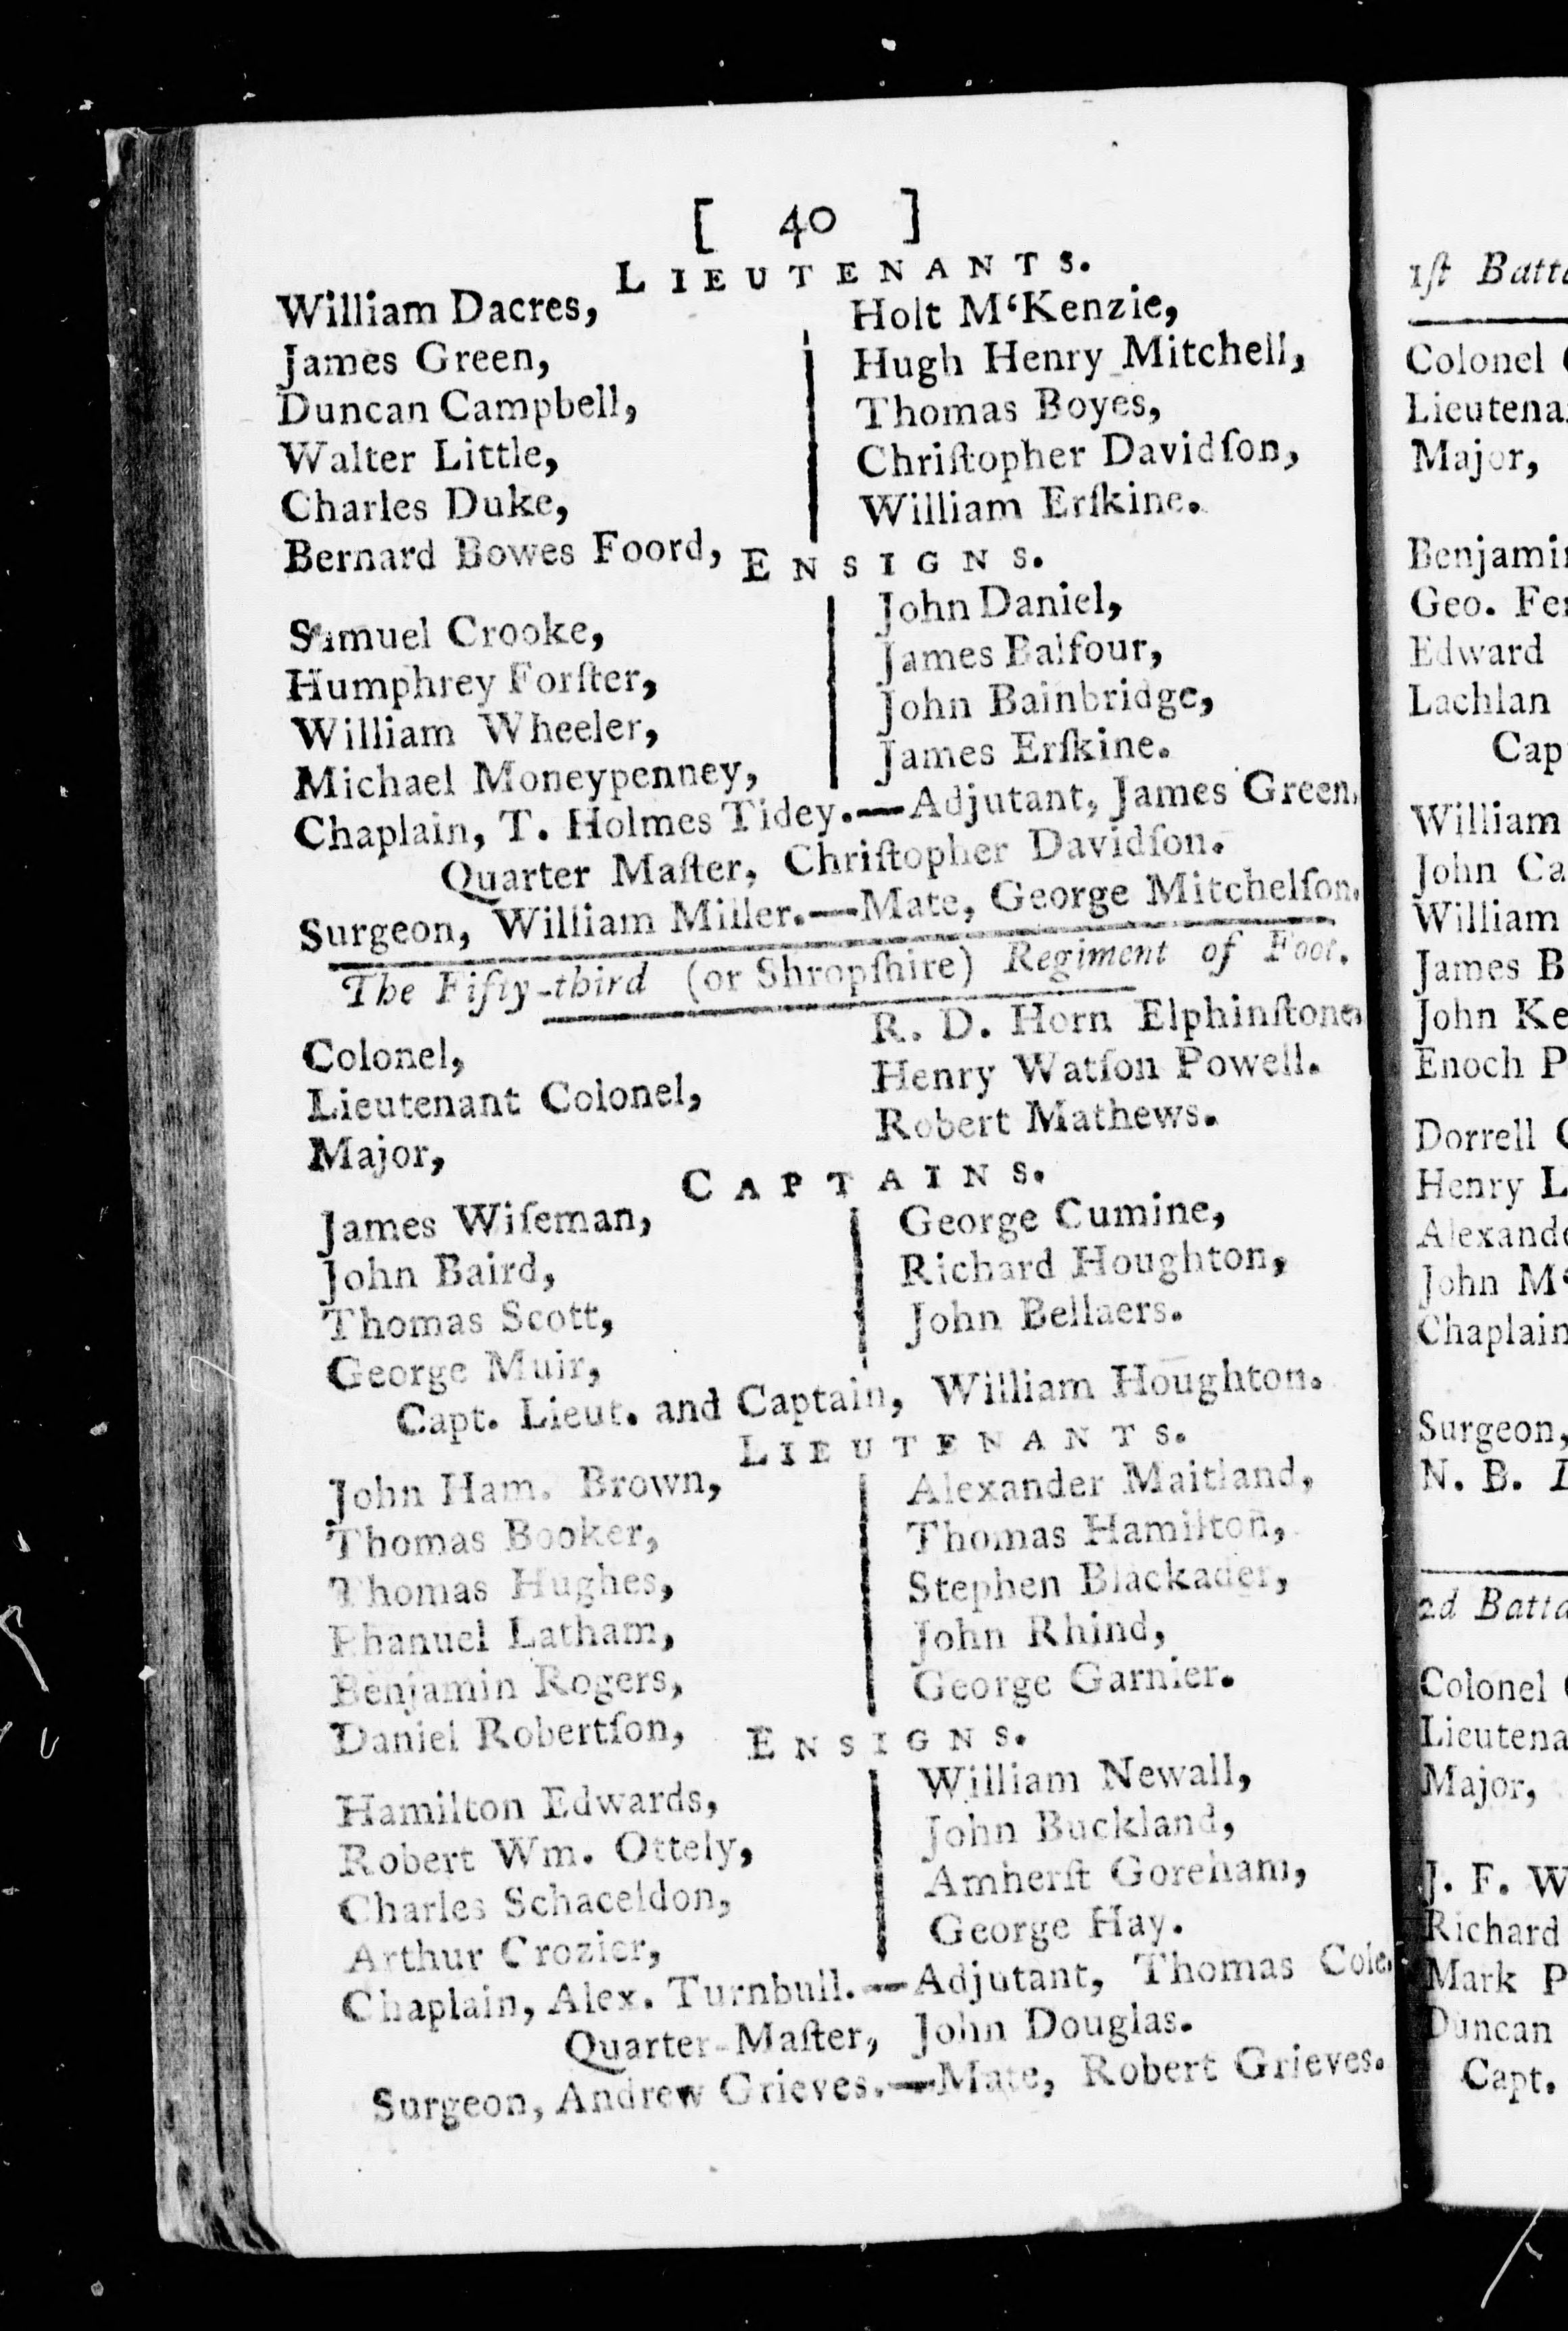 [ 40 ]
LIEUTENANTS.
William Dacres,
James Green,
Duncan Campbell,
Walter Little,
Charles Duke,
Bernard Bowes Foord,
Holt M‘Kenzie,
Hugh Henry Mitchell,
Thomas Boyes,
Chriſtopher Davidſon,
William Erſkine.
ENSIGNS.
Samuel Crooke,
Humphrey Forſter,
William Wheeler,
Michael Moneypenney,
John Daniel,
James Balfour,
John Bainbridge,
James Erſkine.
Chaplain, T. Holmes Tidey.—Adjutant, James Green.
Quarter Maſter, Chriſtopher Davidſon.
Surgeon, William Miller.—Mate, George Mitchelſon.
The Fifty-third (or Shropſhire) Regiment of Foot.
Colonel, R. D. Horn Elphinſtone.
Lieutenant Colonel, Henry Watſon Powell.
Major, Robert Mathews.
CAPTAINS.
James Wiſeman,
John Baird,
Thomas Scott,
George Muir,
George Cumine,
Richard Houghton,
John Bellaers.
Capt. Lieut. and Captain, William Houghton.
LIEUTENANTS.
John Ham. Brown,
Thomas Booker,
Thomas Hughes,
Latham,
Benjamin Rogers,
Daniel Robertſon,
Alexander Maitland,
Thomas Hamilton,
Stephen Blackader,
John Rhind,
George Garnier.
ENSIGNS.
Hamilton Edwards,
Robert Wm. Ottely,
Charles Schaceldon,
Arthur Crozier,
William Newall,
John Buckland,
Amherſt Goreham,
George Hay.
Chaplain, Alex. Turnbull.—Adjutant, Thomas Cole.
Quarter-Maſter, John Douglas.
Surgeon, Andrew Grieves.—Mate, Robert Grieves.
1ſt
Colonel
Major,
Geo.
Edward
Lachlan
William
John
William
James
John
Enoch
Dorrell
Henry
John
Chaplain
Surgeon,
N. B.
2d
Colonel
Major,
J. F.
Richard
Mark
Duncan
Capt.